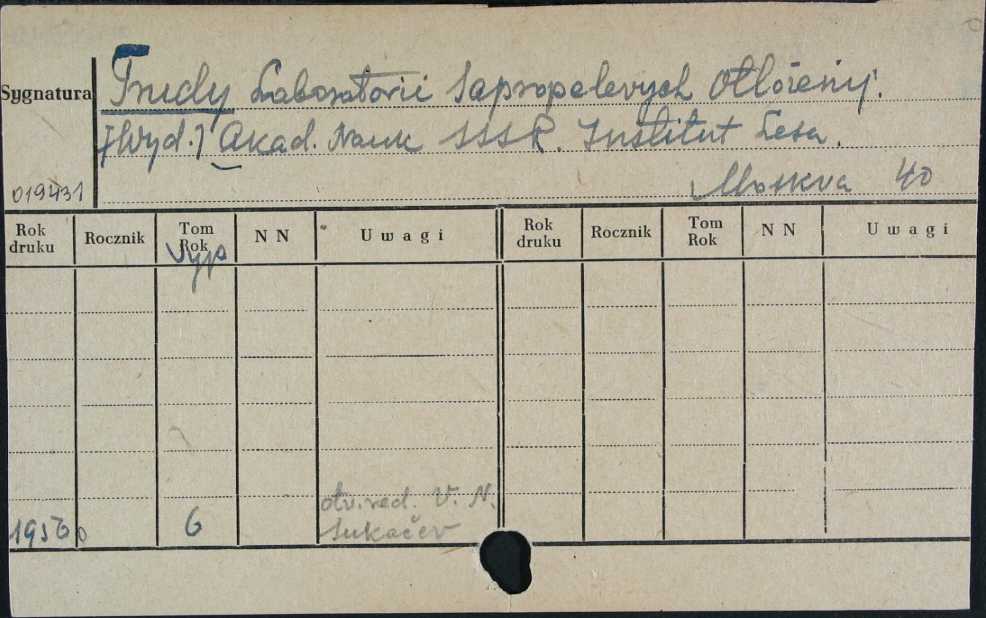 Sygnatura
Trudy Laboratorii Sapropelevych Otložénij.
[Wyd.] Akad. Nauk SSSR. Institut Lesa.
019431
Moskva 40
Rok druku Rocznik Tom Rok NN Uwagi Rok druku Rocznik Tom Rok NN Uwagi
vyp
otv. red. V. N.
1956 6 Sukačev